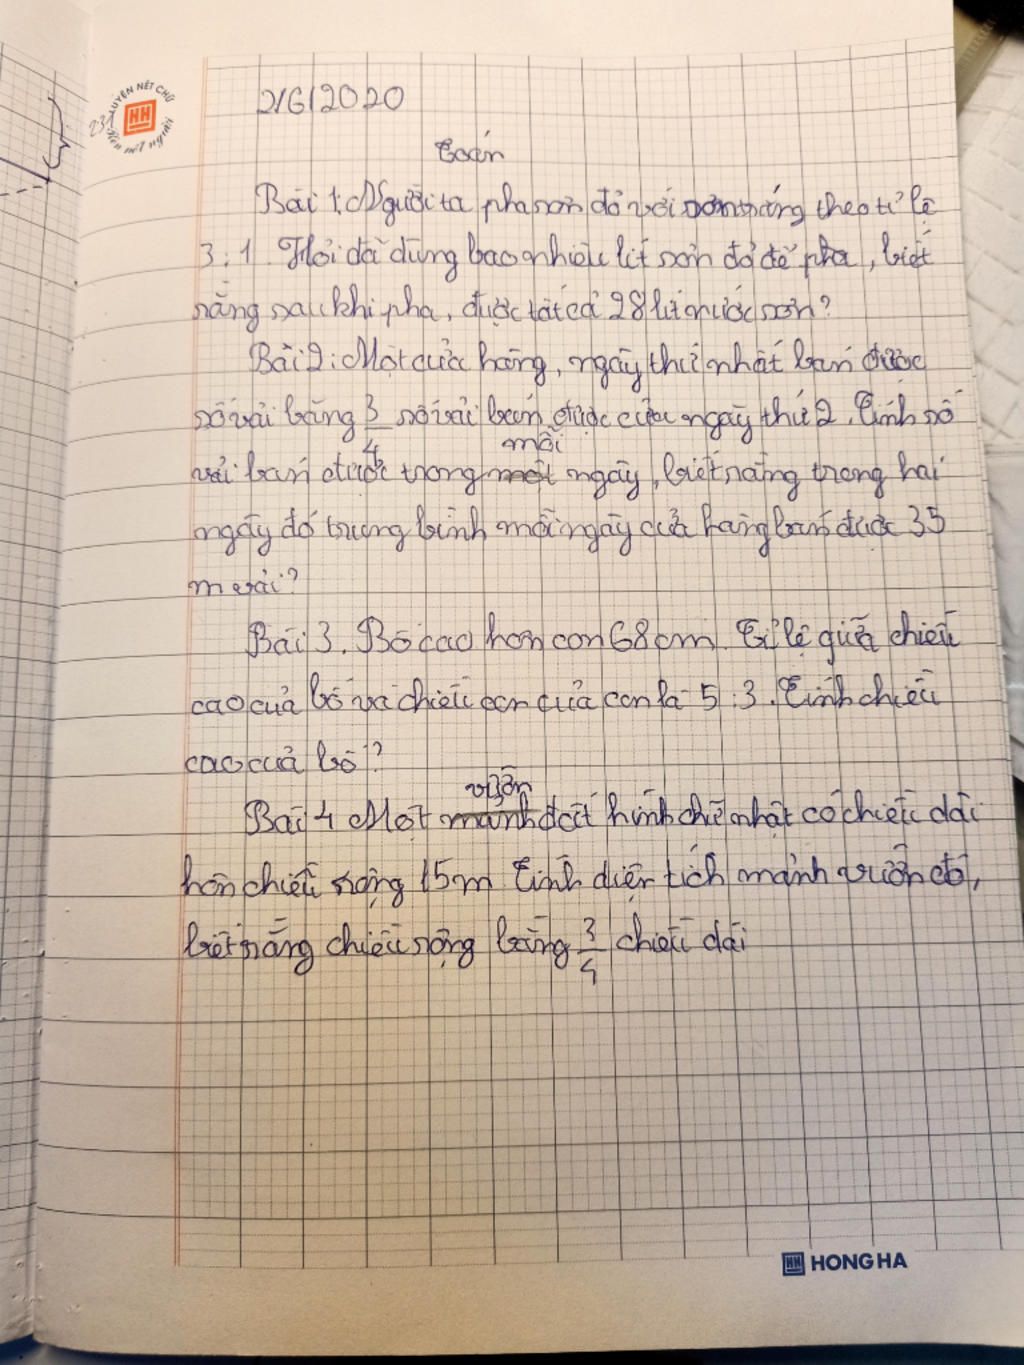 LUYỆN NÉT CHỮ
HH
Rèn nết người
2/6/2020
Toán
Bài 1: Người ta pha sơn đỏ với sơn trắng theo tỉ lệ
3 : 1. Hỏi đã dùng bao nhiêu lít sơn đỏ để pha, biết
rằng sau khi pha, được tất cả 28 lít nước sơn?
Bài 2: Một cửa hàng, ngày thứ nhất bán được
số vải bằng 3/4 số vải bán được của ngày thứ 2. Tính số
mỗi
vải bán được trong một ngày, biết rằng trong hai
ngày đó trung bình mỗi ngày cửa hàng bán được 35
m vải?
Bài 3. Bố cao hơn con 68cm. Tỉ lệ giữa chiều
cao của bố và chiều cao của con là 5 : 3. Tính chiều
cao của bố?
vườn
Bài 4 Một mảnh đất hình chữ nhật có chiều dài
hơn chiều rộng 15m Tính diện tích mảnh vườn đó,
biết rằng chiều rộng bằng 3/4 chiều dài
HH HONG HA